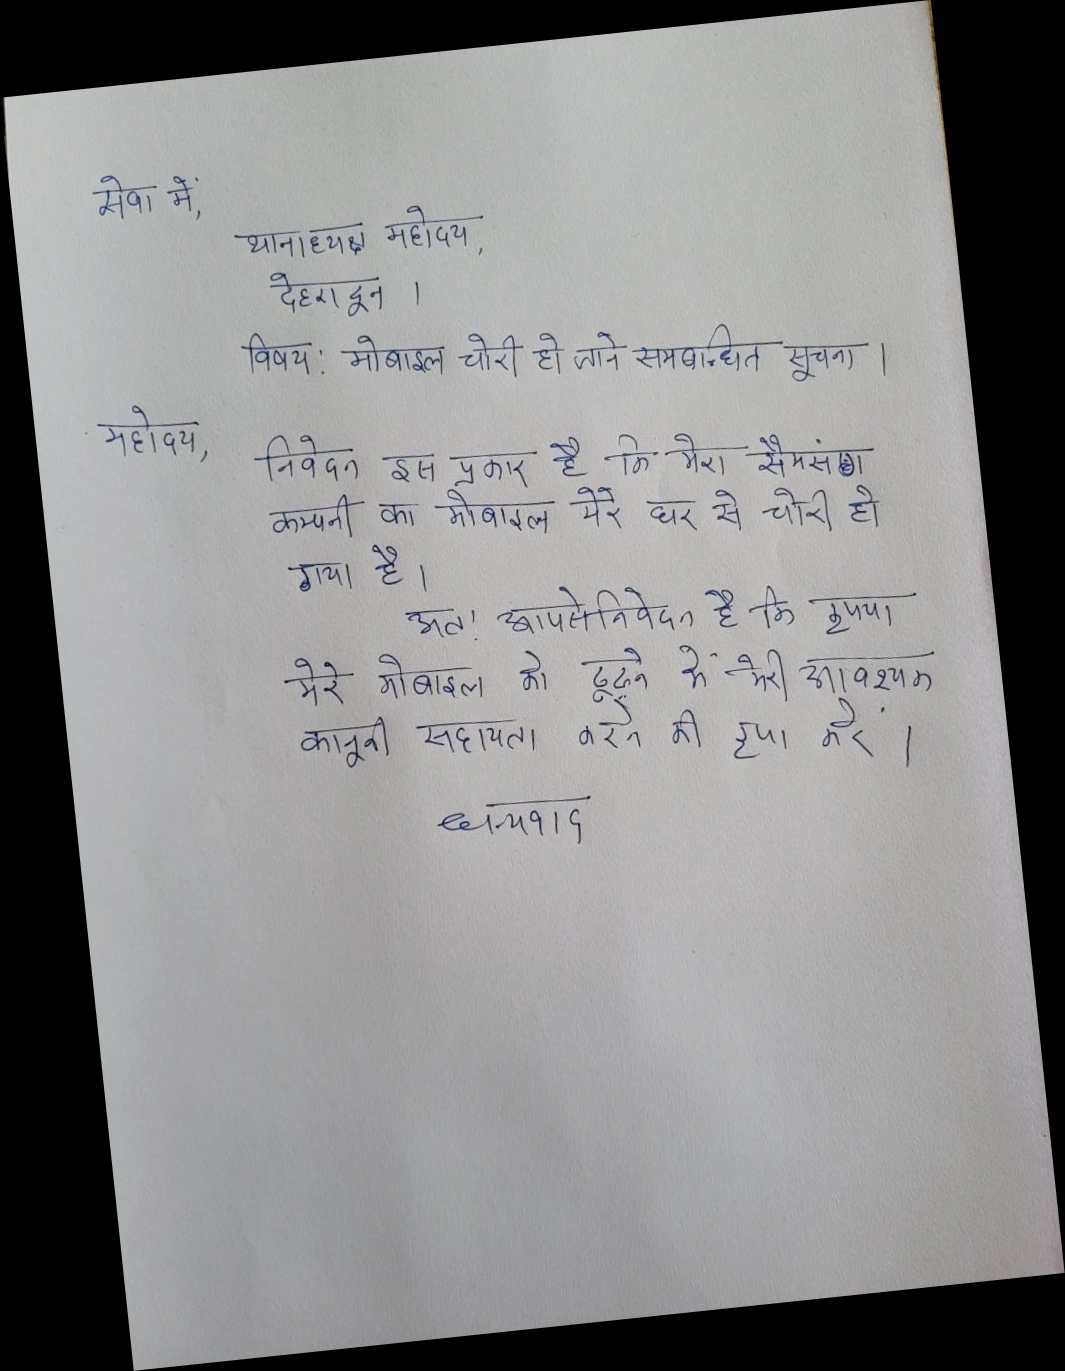 सेवा में,
थानाध्यक्ष महोदय,
देहरादून ।
विषय: मोबाइल चोरी हो जाने समबन्धित सूचना ।
महोदय,
निवेदन इस प्रकार है कि मेरा सैमसंग
कम्पनी का मोबाइल मेरे घर से चोरी हो
गया है ।
अत: आपसे निवेदन है कि कृपया
मेरे मोबाइल को ढूढ़ने में मेरी आवश्यक
कानूनी सहायता करने की कृपा करें ।
धन्यवाद